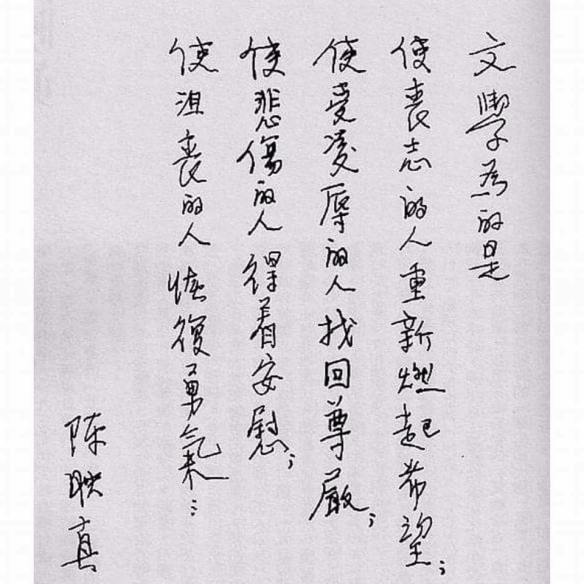 文學為的是
使喪志的人重新燃起希望；
使受凌辱的人找回尊嚴；
使悲傷的人得着安慰；
使沮喪的人恢復勇氣…
陳映真